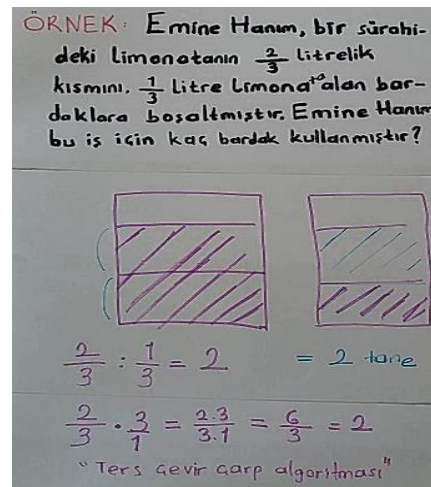 ÖRNEK: Emine Hanım, bir sürahi-
deki limonatanın 2/3 litrelik
kısmını, 1/3 Litre Limonata alan bar-
daklara boşaltmıştır. Emine Hanım
bu iş için kaç bardak kullanmıştır?
2/3 : 1/3 = 2 = 2 tane
2/3 · 3/1 = 2.3/3.1 = 6/3 = 2
"Ters çevir çarp algoritması"